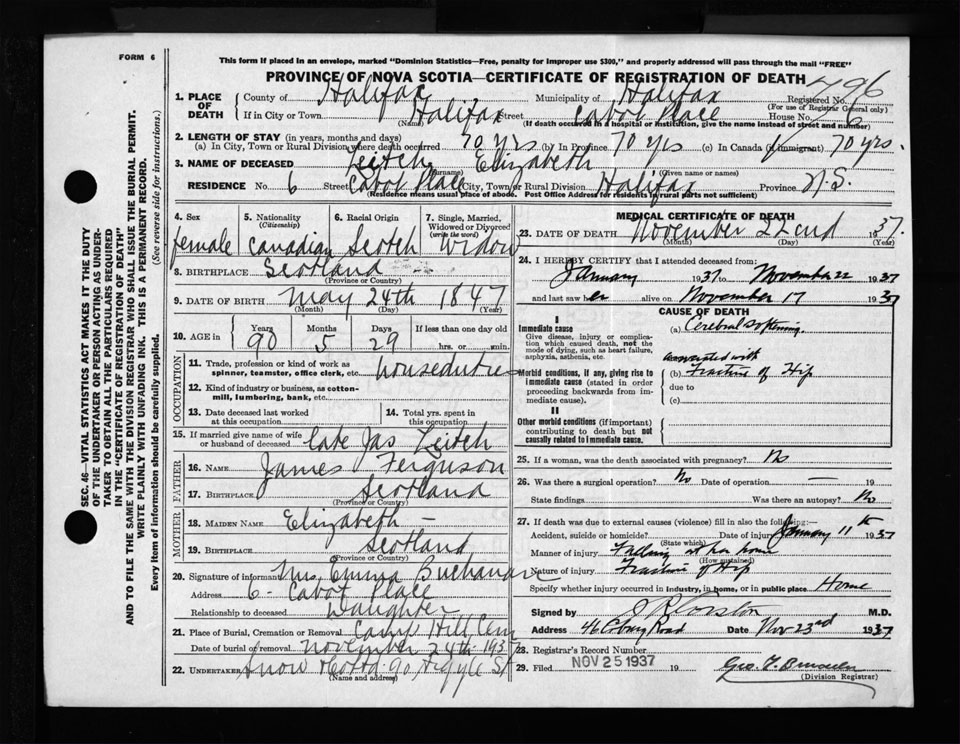 FORM 6
This form if placed in an envelope, marked "Dominion Statistics—Free, penalty for improper use $300," and properly addressed will pass through the mail "FREE"
PROVINCE OF NOVA SCOTIA—CERTIFICATE OF REGISTRATION OF DEATH
1. PLACE OF DEATH
County of Halifax Municipality of Halifax Registered No. 796
(For use of Registrar General only)
If in City or Town Halifax Street Cabot Place House No. 6
(Name) (If death occurred in a hospital or institution, give the name instead of street and number)
2. LENGTH OF STAY (in years, months and days)
(a) In City, Town or Rural Division where death occurred 70 yrs (b) In Province 70 yrs (c) In Canada (if immigrant) 70 yrs.
3. NAME OF DECEASED Leitch, Elizabeth
(Surname) (Given name or names)
RESIDENCE No. 6 Street Cabot Place City, Town or Rural Division Halifax Province N.S.
(Residence means usual place of abode. Post Office Address for residents in rural parts not sufficient)
4. Sex female
5. Nationality (Citizenship) Canadian
6. Racial Origin Scotch
7. Single, Married, Widowed or Divorced (write the word) Widow
8. BIRTHPLACE Scotland
(Province or Country)
9. DATE OF BIRTH May 24th 1847
(Month) (Day) (Year)
10. AGE in Years 90 Months 5 Days 29 If less than one day old hrs. or min.
OCCUPATION
11. Trade, profession or kind of work as spinner, teamster, office clerk, etc. houseduties
12. Kind of industry or business, as cotton-mill, lumbering, bank, etc.
13. Date deceased last worked at this occupation
14. Total yrs. spent in this occupation
15. If married give name of wife or husband of deceased late Jas Leitch
FATHER
16. NAME James Ferguson
17. BIRTHPLACE Scotland
(Province or Country)
MOTHER
18. MAIDEN NAME Elizabeth —
19. BIRTHPLACE Scotland
(Province or Country)
20. Signature of informant Mrs. Emma Buchanan
Address 6 - Cabot Place
Relationship to deceased Daughter
21. Place of Burial, Cremation or Removal Camp Hill Cem
Date of burial or removal November 24th 1937
22. UNDERTAKER Snow & Co Ltd. 90 Argyle St
(Name and address)
MEDICAL CERTIFICATE OF DEATH
23. DATE OF DEATH November 22nd 1937.
(Month) (Day) (Year)
24. I HEREBY CERTIFY that I attended deceased from:
January 1937 to November 22 1937
and last saw her alive on November 17 1937
CAUSE OF DEATH
I
Immediate cause
Give disease, injury or complication which caused death, not the mode of dying, such as heart failure, asphyxia, asthenia, etc.
(a) Cerebral softening.
associated with
Morbid conditions, if any, giving rise to immediate cause (stated in order proceeding backwards from immediate cause).
(b) Fracture of Hip
due to
(c)
II
Other morbid conditions (if important) contributing to death but not causally related to immediate cause.
25. If a woman, was the death associated with pregnancy? No
26. Was there a surgical operation? No Date of operation — 19
State findings Was there an autopsy? No
27. If death was due to external causes (violence) fill in also the following:—
Accident, suicide or homicide? Date of injury January 11th 1937
(State which)
Manner of injury Falling at her home
(How sustained)
Nature of injury Fracture of Hip
Specify whether injury occurred in Industry, in home, or in public place Home
Signed by M.D.
Address 46 Coburg Road Date Nov 23rd 1937
28. Registrar's Record Number
29. Filed NOV 25 1937 19
(Division Registrar)
SEC. 46—VITAL STATISTICS ACT MAKES IT THE DUTY
OF THE UNDERTAKER OR PERSON ACTING AS UNDER-
TAKER TO OBTAIN ALL THE PARTICULARS REQUIRED
IN THE "CERTIFICATE OF REGISTRATION OF DEATH"
AND TO FILE THE SAME WITH THE DIVISION REGISTRAR WHO SHALL ISSUE THE BURIAL PERMIT.
WRITE PLAINLY WITH UNFADING INK. THIS IS A PERMANENT RECORD.
Every item of information should be carefully supplied. (See reverse side for instructions.)